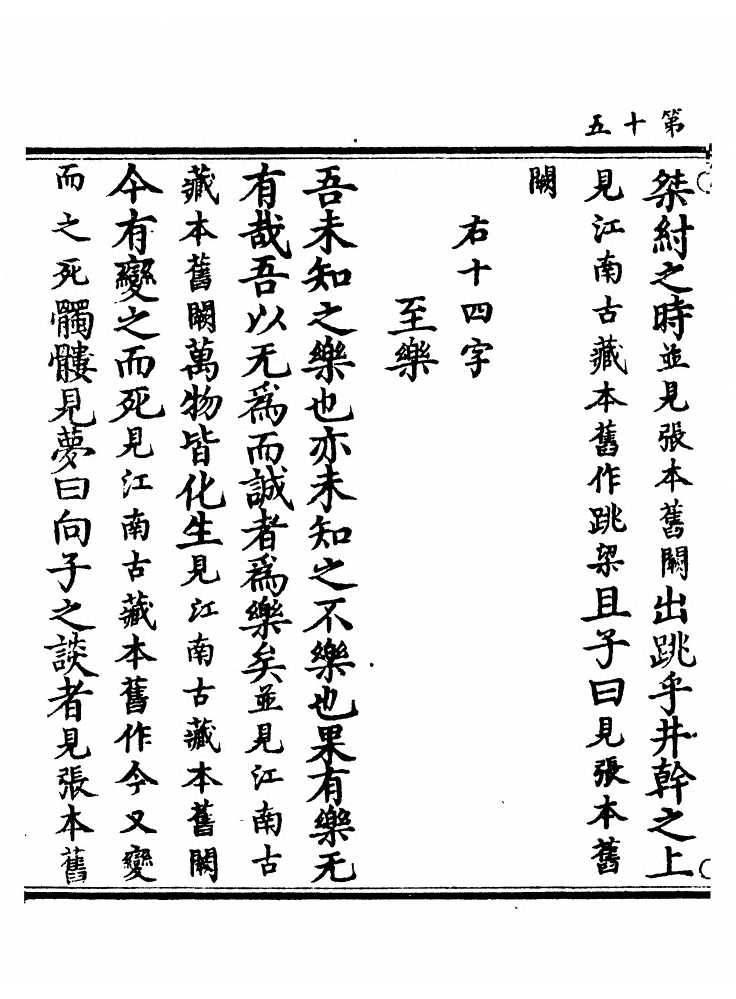 第十五
桀紂之時並見張本舊闕出跳乎井幹之上
見江南古藏本舊作跳梁且子曰見張本舊
闕
右十四字
至樂
吾未知之樂也亦未知之不樂也果有樂无
有哉吾以无爲而誠者爲樂矣並見江南古
藏本舊闕萬物皆化生見江南古藏本舊闕
今有變之而死見江南古藏本舊作今又變
而之死髑髏見夢曰向子之談者見張本舊